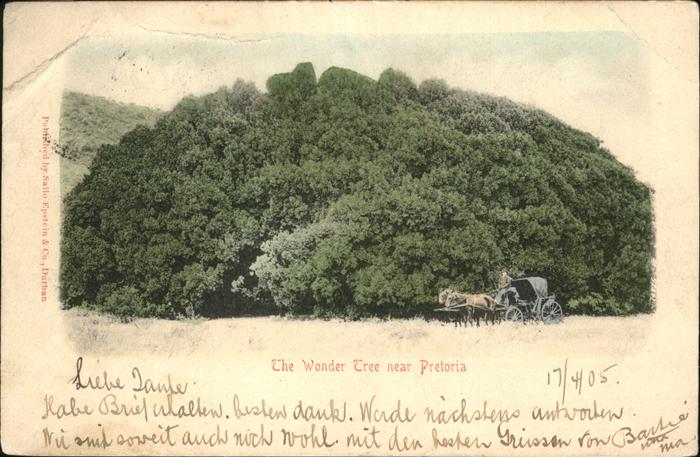 Published by Sallo Epstein & Co., Durban
The Wonder Tree near Pretoria
17/4/05.
Liebe Tante
Habe Brief erhalten. besten dank. Werde nächstens antworten.
Wir sind soweit auch noch wohl mit den besten Grüssen von